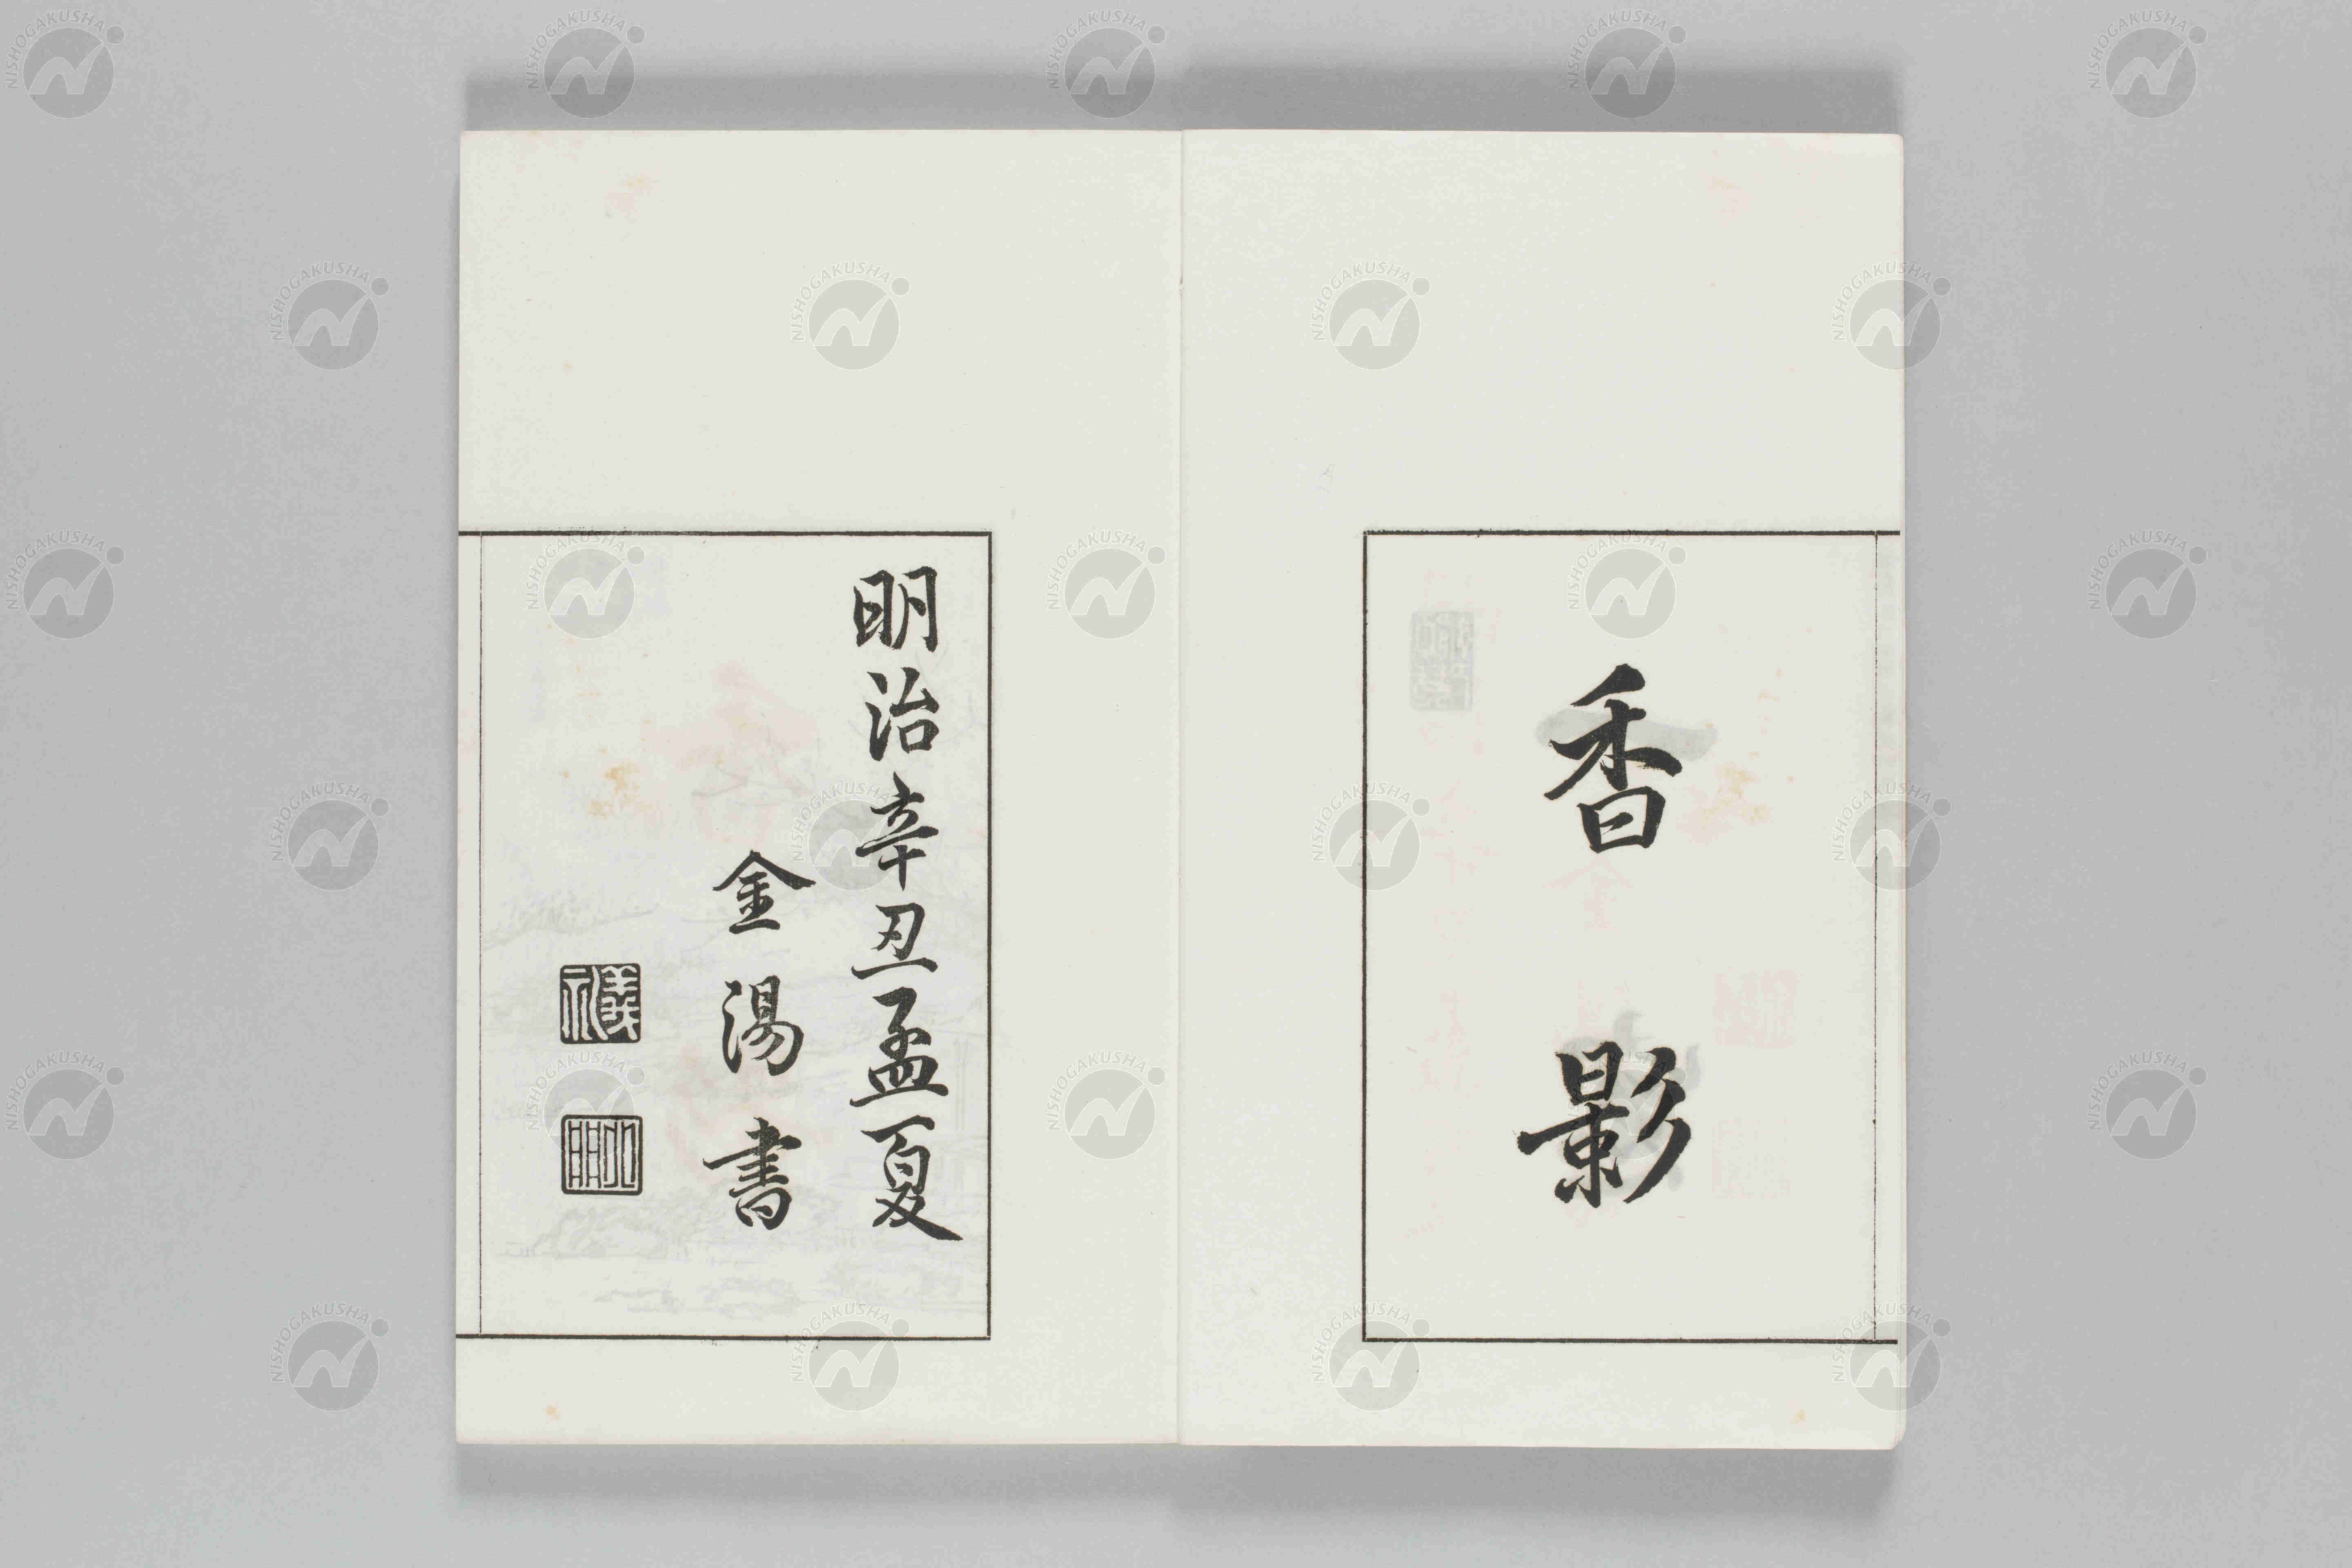 香影
明治辛丑孟夏
金湯書
NISHOGAKUSHA